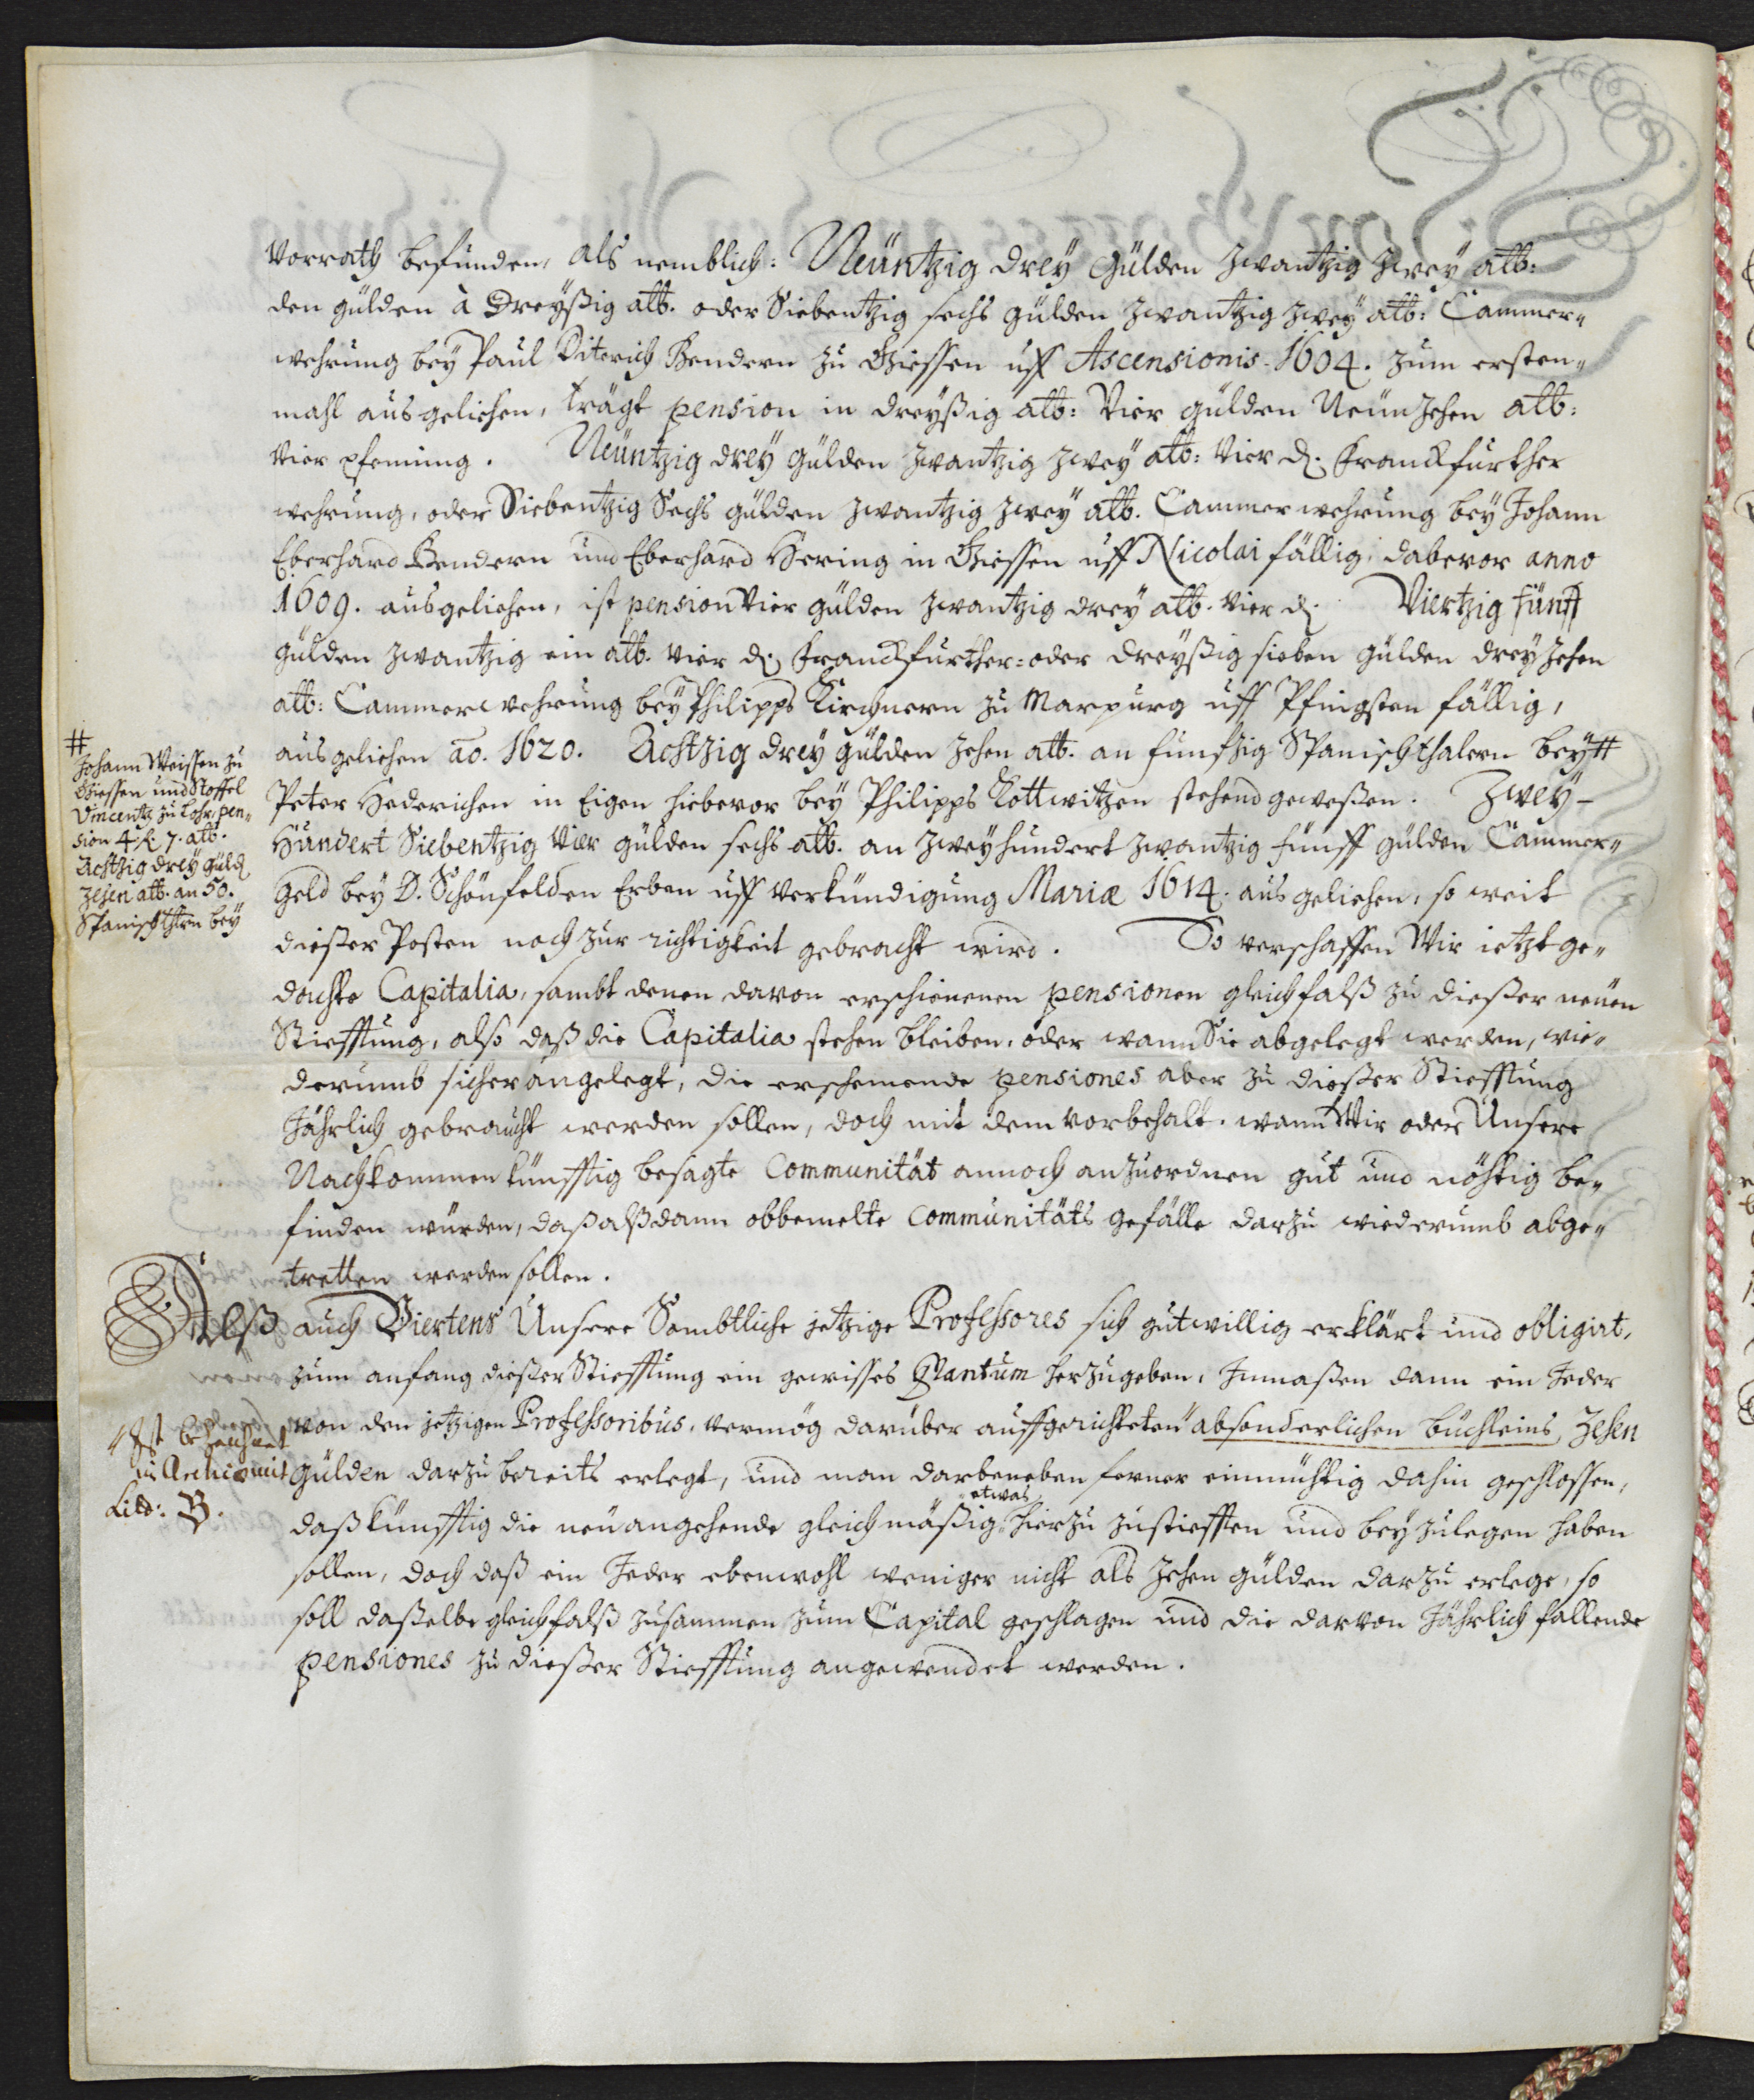 Vorrath befunden, als nemblich: Neüntzig drey Gülden zwantzig zwey alb:
den gülden à Dreyßig alb. oder Siebentzig sechs gülden zwantzig zwey alb: Cammer„
wehrung bey Paul Diterich Bendern zu Giessen uff Ascensionis 1604. zum ersten„
mahl ausgeliehen, trägt pension in dreyßig alb: Vier gülden Neünzehen alb:
Vier pfenning. Neüntzig drey Gülden zwantzig zwey alb: Vier d. Franckfurther
wehrung, oder Siebentzig Sechs gülden zwantzig zwey alb. Cammerwehrung bey Johann
Eberhard Bendern und Eberhard Hering in Giessen uff Nicolai fällig, dabevor anno
1609. ausgeliehen, ist pension Vier gülden zwantzig drey alb. vier d. Viertzig fünff
gülden zwantzig ein alb. vier d. Franckfurther= oder dreyßig sieben gülden dreyzehen
alb: Cammerwehrung bey Philipps Kirchnern zu Marpurg uff Pfingsten fällig,
ausgeliehen ao. 1620. Achtzig drey gülden zehen alb. an funfzig Spanischthalern bey #
#
Johann Weissen zu
Giessen und Stoffel
Vincentz zu Lohr, pen„
sion 4 fl. 7. alb.
Achtzig drey güld.
zehen alb. an 50.
Spanischthlrn bey
Peter Hederichen in Eigen hiebevor bey Philipps Kottwitzen stehend geweßen. Zwey-
Hundert Siebentzig Vier gülden sechs alb. an zweyhundert zwantzig fünff gülden Cammer„
Geld bey D. Schönfelden Erben uff Verkündigung Mariæ 1614. ausgeliehen, so weit
dießer Posten noch zur richtigkeit gebracht wird. So verschaffen Wir ietzt ge„
dachte Capitalia, sambt denen davon erschienenen pensionen gleichfalß zu dießer neüen
Stiefftung, also daß die Capitalia stehen bleiben, oder wann Sie abgelegt werden, wie„
derumb sicher angelegt, die erscheinende pensiones aber zu dießer Stiefftung
Jährlich gebraucht werden sollen, doch mit dem Vorbehalt, wann Wir oder Unsere
Nachkommen künfftig besagte Communität annoch anzuordnen gut und nöhtig be„
finden würden, daß alßdann obbemelte Communitäts Gefälle darzu wiederumb abge„
tretten werden sollen.
Alß auch Viertens Unsere Sambtliche jetzige Professores sich gutwillig erklärt und obligirt,
zum anfang dießer Stiefftung ein gewisses Quantum herzugeben, Inmaßen dann ein Jeder
von den jetzigen Professoribus, vermög darüber auffgerichteten " absonderlichen Büchleins, Zehen
" Ist bezeichnet
in Archiv mit
Litt: B.
Gülden darzu bereits erlegt, und man darbeneben ferner einmühtig dahin geschlossen,
daß künfftig die neüangehende gleichmäßig etwas hierzu zustiefften und beyzulegen haben
sollen, doch daß ein Jeder ebenwohl weniger nicht als Zehen gülden darzu erlege, so
soll daßelbe gleichfalß zusammen zum Capital geschlagen und die darvon Jährlich fallende
pensiones zu dießer Stiefftung angewendet werden.